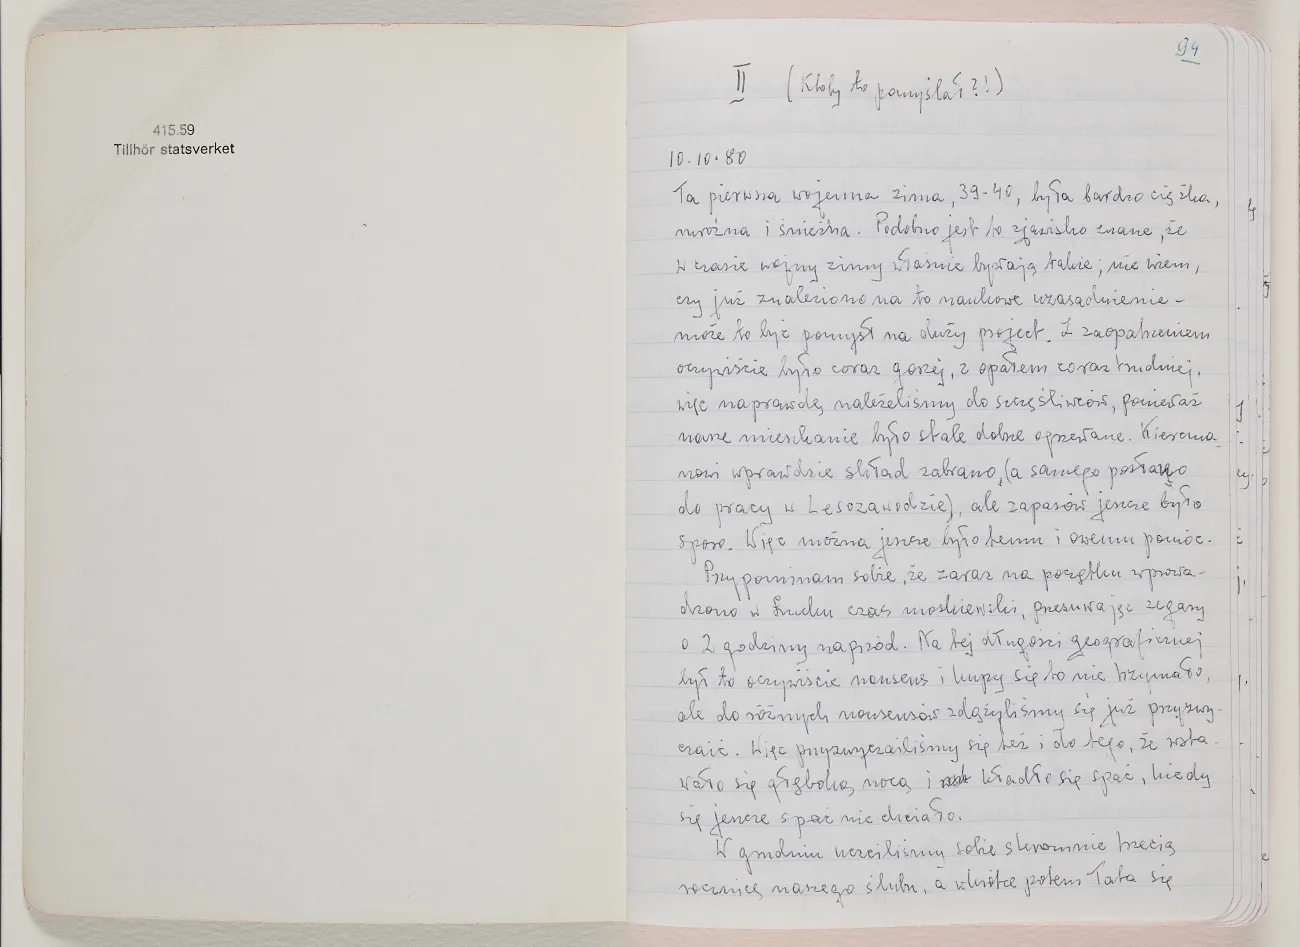 415.59
Tillhör statsverket
94
II (Któby to pomyślał?!)
10.10.80
Ta pierwsza wojenna zima, 39-40, była bardzo ciężka,
mroźna i śnieżna. Podobno jest to zjawisko znane, że
w czasie wojny zimy właśnie bywają takie; nie wiem,
czy już znaleziono na to naukowe uzasadnienie -
może to być pomysł na duży project. Z zaopatrzeniem
oczywiście było coraz gorzej, z opałem coraz trudniej,
więc naprawdę należeliśmy do szczęśliwców, ponieważ
nasze mieszkanie było stale dobrze ogrzewane.
nowi wprawdzie skład zabrano, (a samego posłano
do pracy w Lesozawodzie), ale zapasów jeszcze było
sporo. Więc można jeszcze było temu i owemu pomóc.
Przypominam sobie, że zaraz na początku wprowa-
dzono w Łucku czas moskiewski, przesuwając zegary
o 2 godziny naprzód. Na tej długości geograficznej
był to oczywiście nonsens i kupy się to nie trzymało,
ale do różnych nonsensów zdążyliśmy się już przyzwy-
czaić. Więc przyzwyczailiśmy się też i do tego, że wsta-
wało się głęboką nocą i kładło się spać, kiedy
się jeszcze spać nie chciało.
W grudniu uczciliśmy sobie skromnie trzecią
rocznicę naszego ślubu, a wkrótce potem Tata się